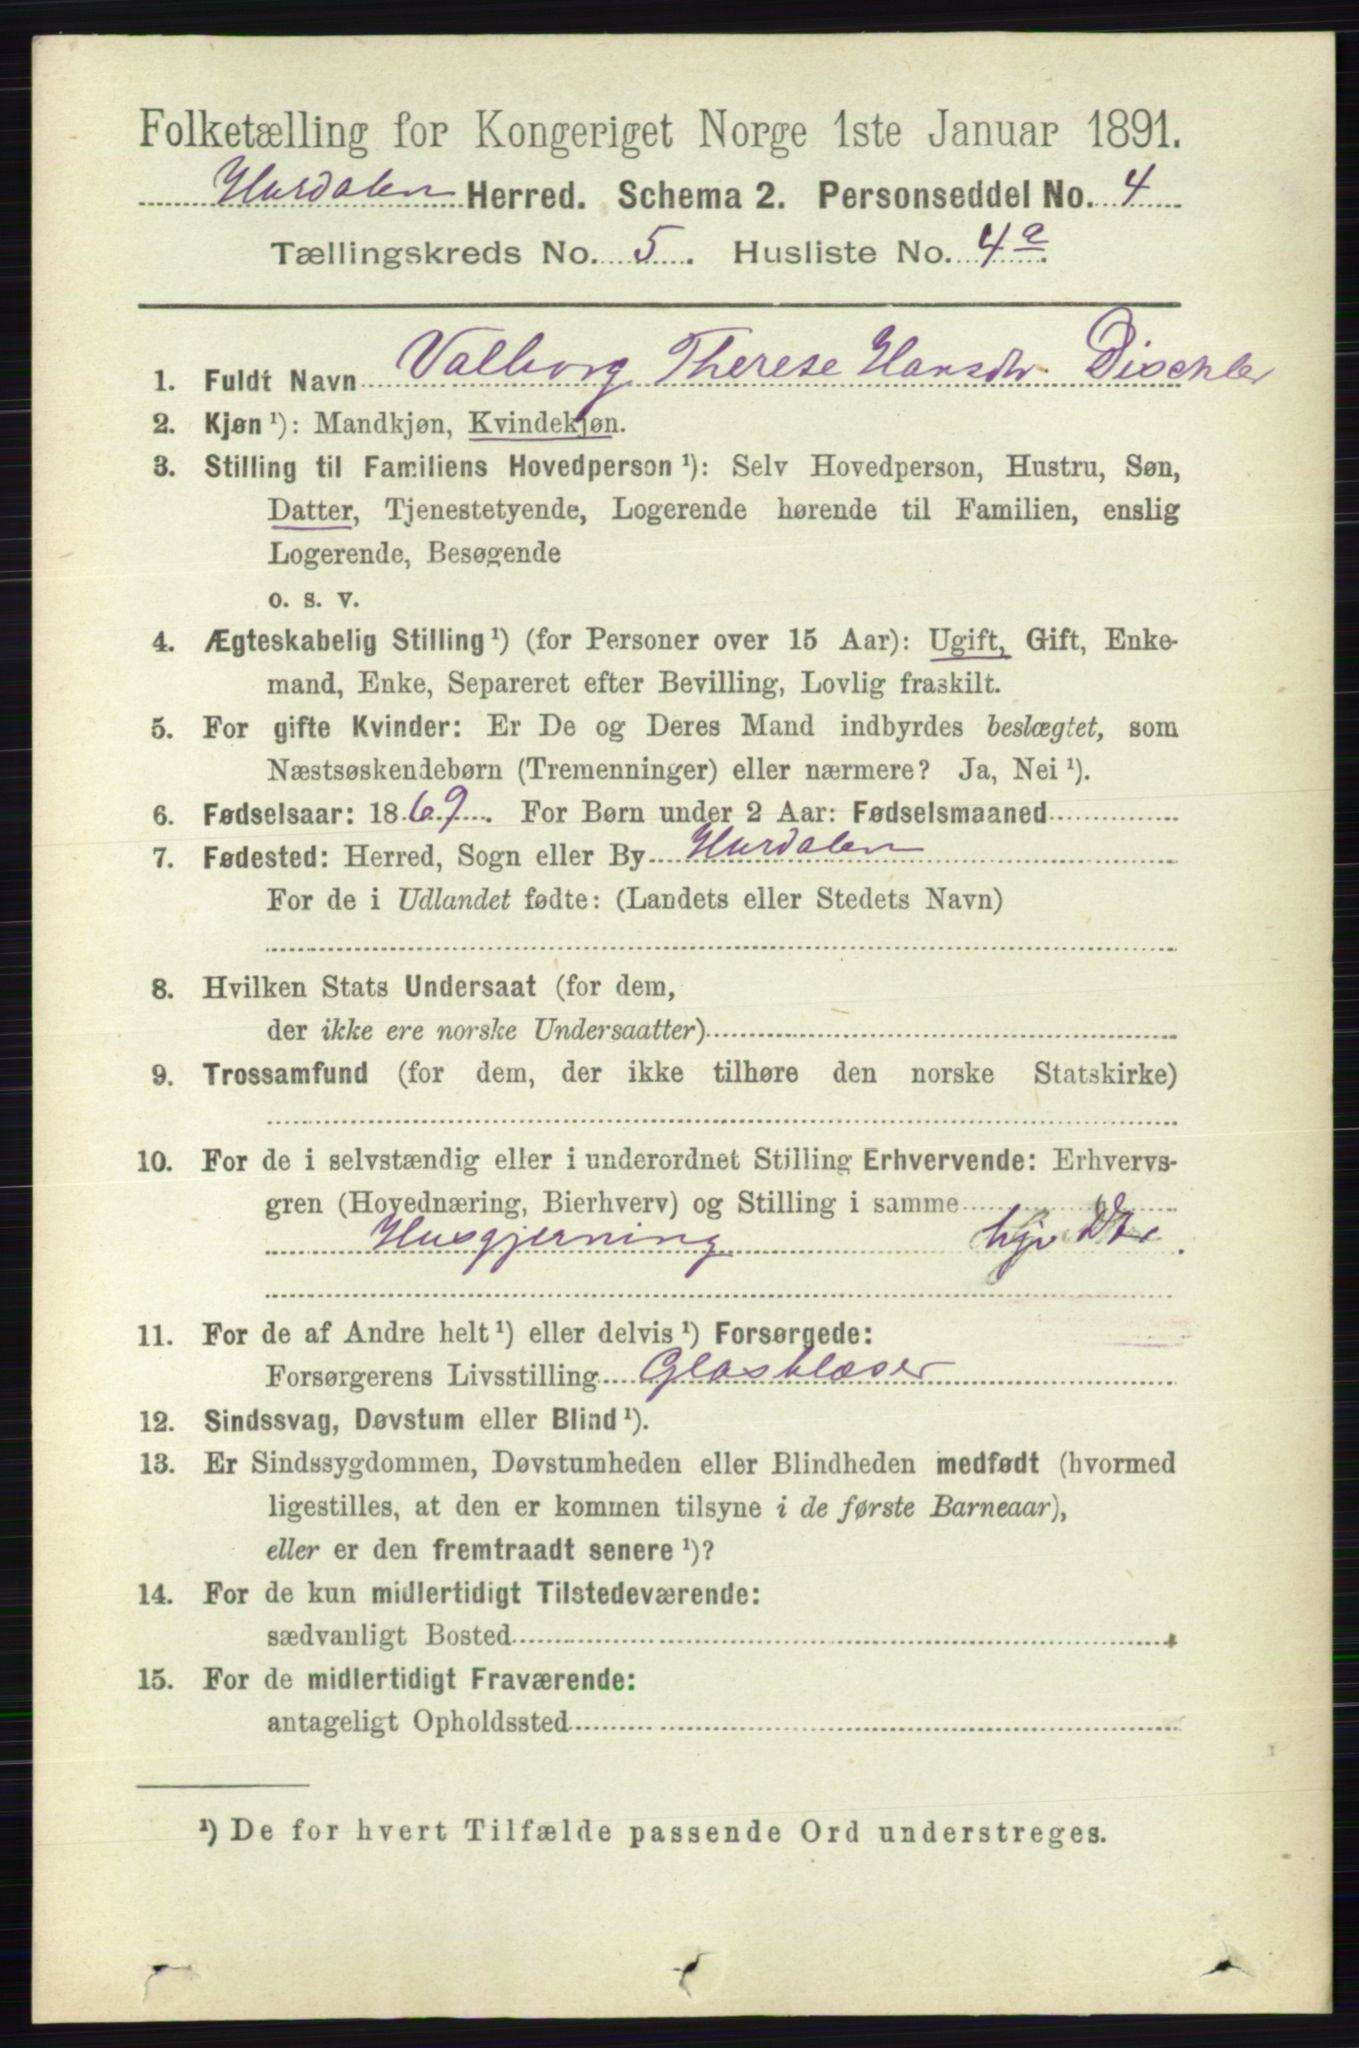 Folketælling for Kongeriget Norge 1ste Januar 1891.
Hurdalen Herred. Schema 2. Personseddel No. 4
Tællingskreds No. 5. Husliste No. 4a.
1. Fuldt Navn Valborg Therese Hansdtr. Dischler
2. Kjøn ¹): Mandkjøn, Kvindekjøn.
3. Stilling til Familiens Hovedperson ¹): Selv Hovedperson, Hustru, Søn,
Datter, Tjenestetyende, Logerende hørende til Familien, enslig
Logerende, Besøgende
o. s. v.
4. Ægteskabelig Stilling ¹) (for Personer over 15 Aar): Ugift, Gift, Enke-
mand, Enke, Separeret efter Bevilling, Lovlig fraskilt.
5. For gifte Kvinder: Er De og Deres Mand indbyrdes beslægtet, som
Næstsøskendebørn (Tremenninger) eller nærmere? Ja, Nei ¹).
6. Fødselsaar: 1869. For Børn under 2 Aar: Fødselsmaaned
7. Fødested: Herred, Sogn eller By Hurdalen
For de i Udlandet fødte: (Landets eller Stedets Navn)
8. Hvilken Stats Undersaat (for dem,
der ikke ere norske Undersaatter)
9. Trossamfund (for dem, der ikke tilhøre den norske Statskirke)
10. For de i selvstændig eller i underordnet Stilling Erhvervende: Erhvervs-
gren (Hovednæring, Bierhverv) og Stilling i samme
Husgjerning
11. For de af Andre helt ¹) eller delvis ¹) Forsørgede:
Forsørgerens Livsstilling Glasblæser
12. Sindssvag, Døvstum eller Blind ¹).
13. Er Sindssygdommen, Døvstumheden eller Blindheden medfødt (hvormed
ligestilles, at den er kommen tilsyne i de første Barneaar),
eller er den fremtraadt senere ¹)?
14. For de kun midlertidigt Tilstedeværende:
sædvanligt Bosted
15. For de midlertidigt Fraværende:
antageligt Opholdssted
¹) De for hvert Tilfælde passende Ord understreges.